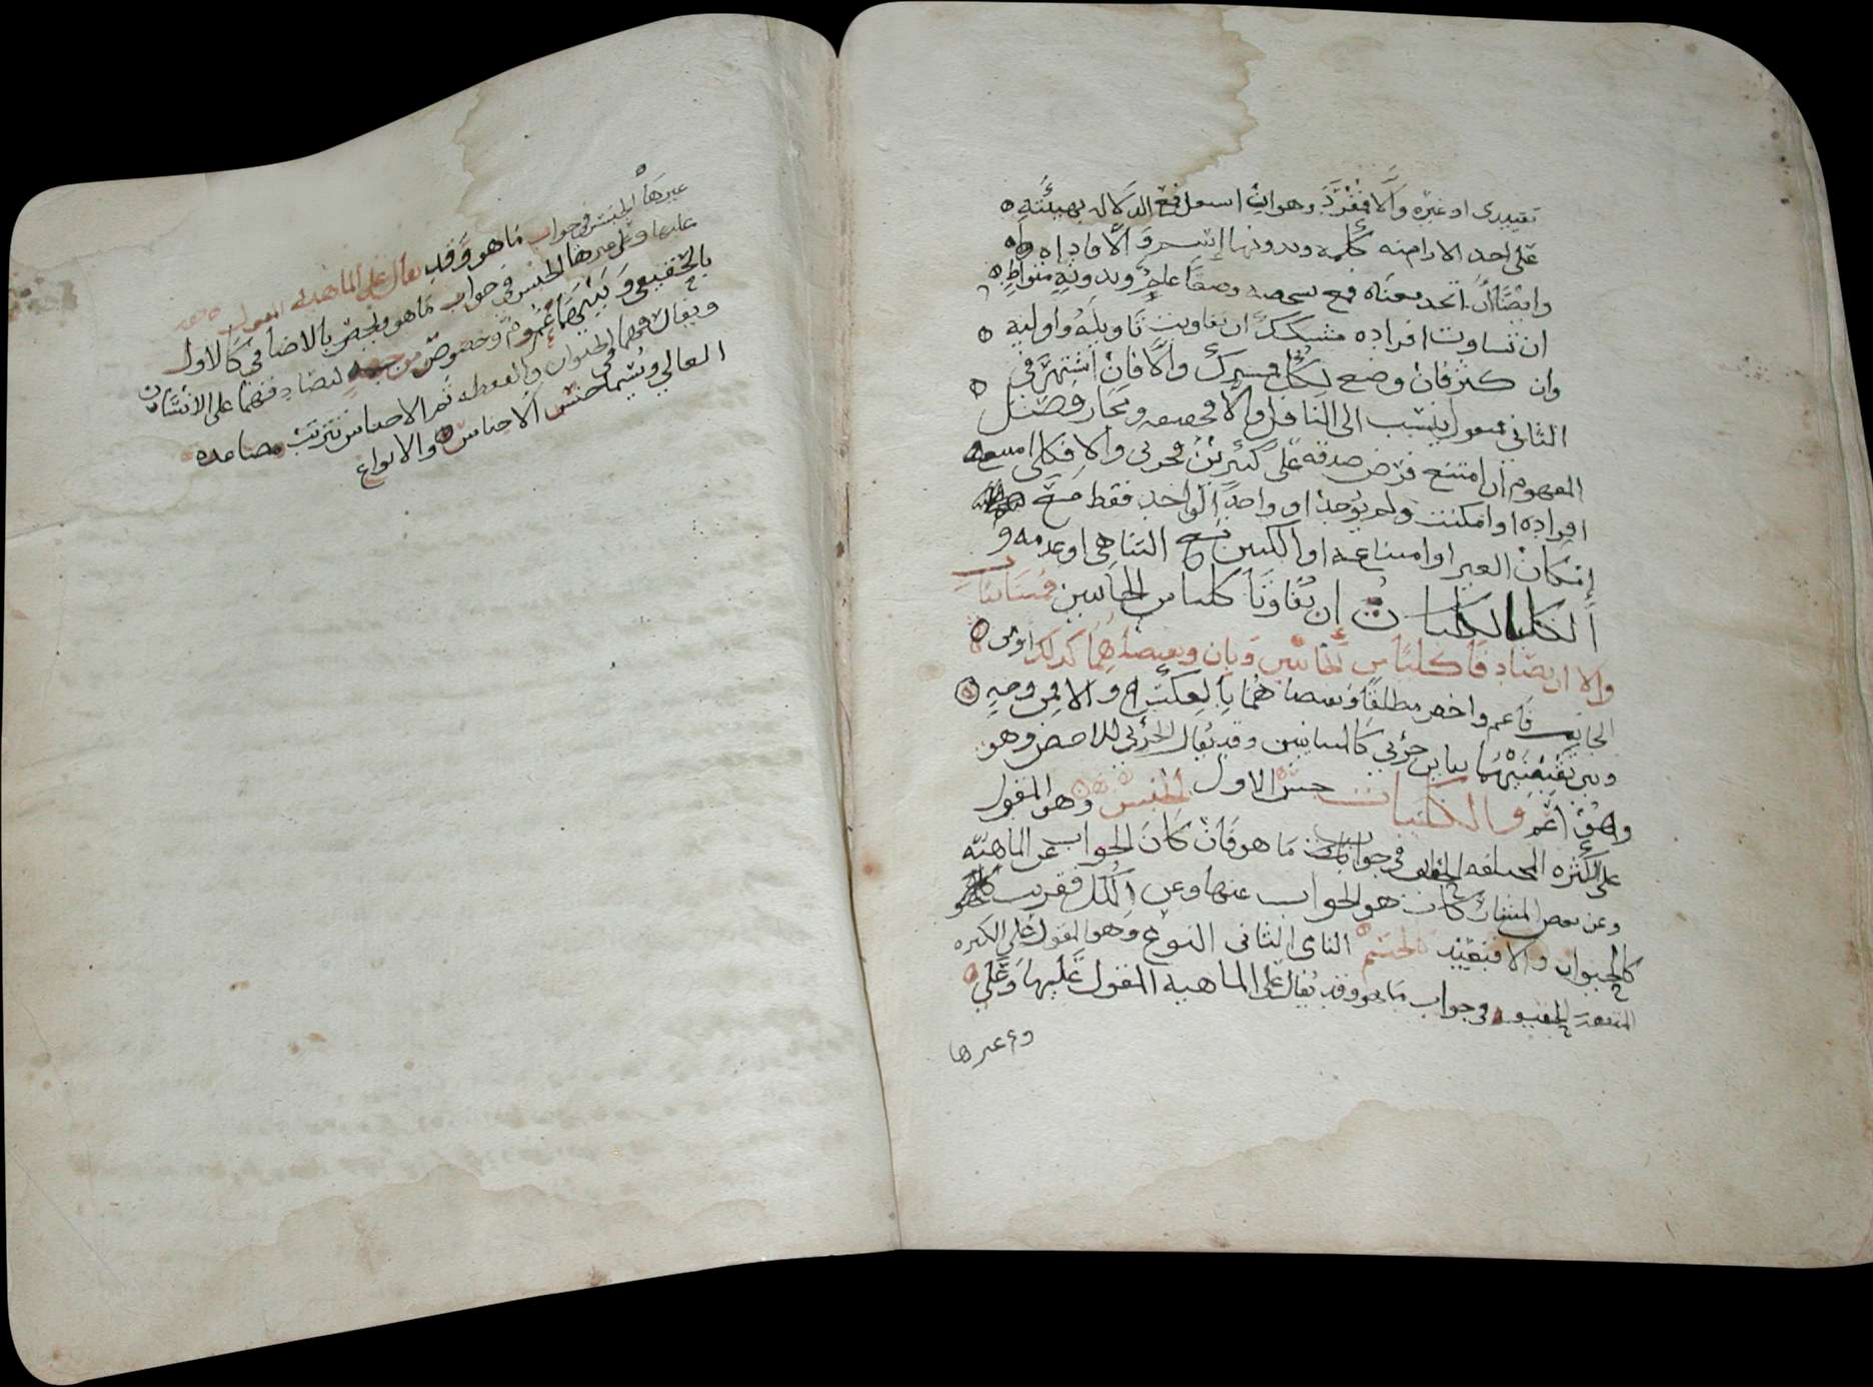 تقييدى او غيره والا فمفرد وهو ان استقل فمع الدلالة بهيئته
على احد الازمنة كلمة وبدونها اسم والا فاداه
وايضا ان اتحد معناه فمع تشخصه وضعا علم وبدونه متواطٍ
ان تساوت افراده مشكك ان تفاوتت باوليه واولويه
وان كثر فان وضع لكل فمشترك والا فان اشتهر فى
الثانى فمنقول ينسب الى الناقل والا فحقيقه ومجاز فصل
المفهوم ان امتنع فرض صدقه على كثيرين فجزئى والا فكلى امتنعت
افراده او امكنت ولم يوجد او وجد الواحد فقط مع
امكان الغير او امتناعه او الكثير مع التناهى او عدمه و
الكليات ان تفارقا كليا من الجانبين فمتباينان
والا ان تصادقا كليا من الجانبين فمتساويان ونقيضاهما كذلك او من
الجانب فاعم واخص مطلقا ونقيضاهما بالعكس والا فمن وجه
وبين نقيضيهما تباين جزئى كالمتباينين وقد يقال الجزئى للاخص وهو
وهو اعم والكليات خمس الاول الجنس وهو المقول
على الكثره المختلفه الحقايق فى جواب ما هو فان كان الجواب عن الماهيه
وعن بعض المشاركات هو الجواب عنها وعن الكل فقريب
كالحيوان والا فبعيد كالجسم الثانى النوع وهو المقول على الكثره
المتفقه الحقيقه فى جواب ما هو وقد يقال على الماهيه المقول عليها وعلى
غيرها
غيرها الجنس فى جواب ما هو وقد يقال على الماهيه المقول
عليها وعلى غيرها الجنس فى جواب ما هو ويختص بالاضافى كالاول
بالحقيقى وبينهما عموم وخصوص من وجه لتصادقهما على الانسان
وتفارقهما فى الحيوان والنقطه ثم الاجناس تترتب متصاعده
العالى ويسمى جنس الاجناس والانواع